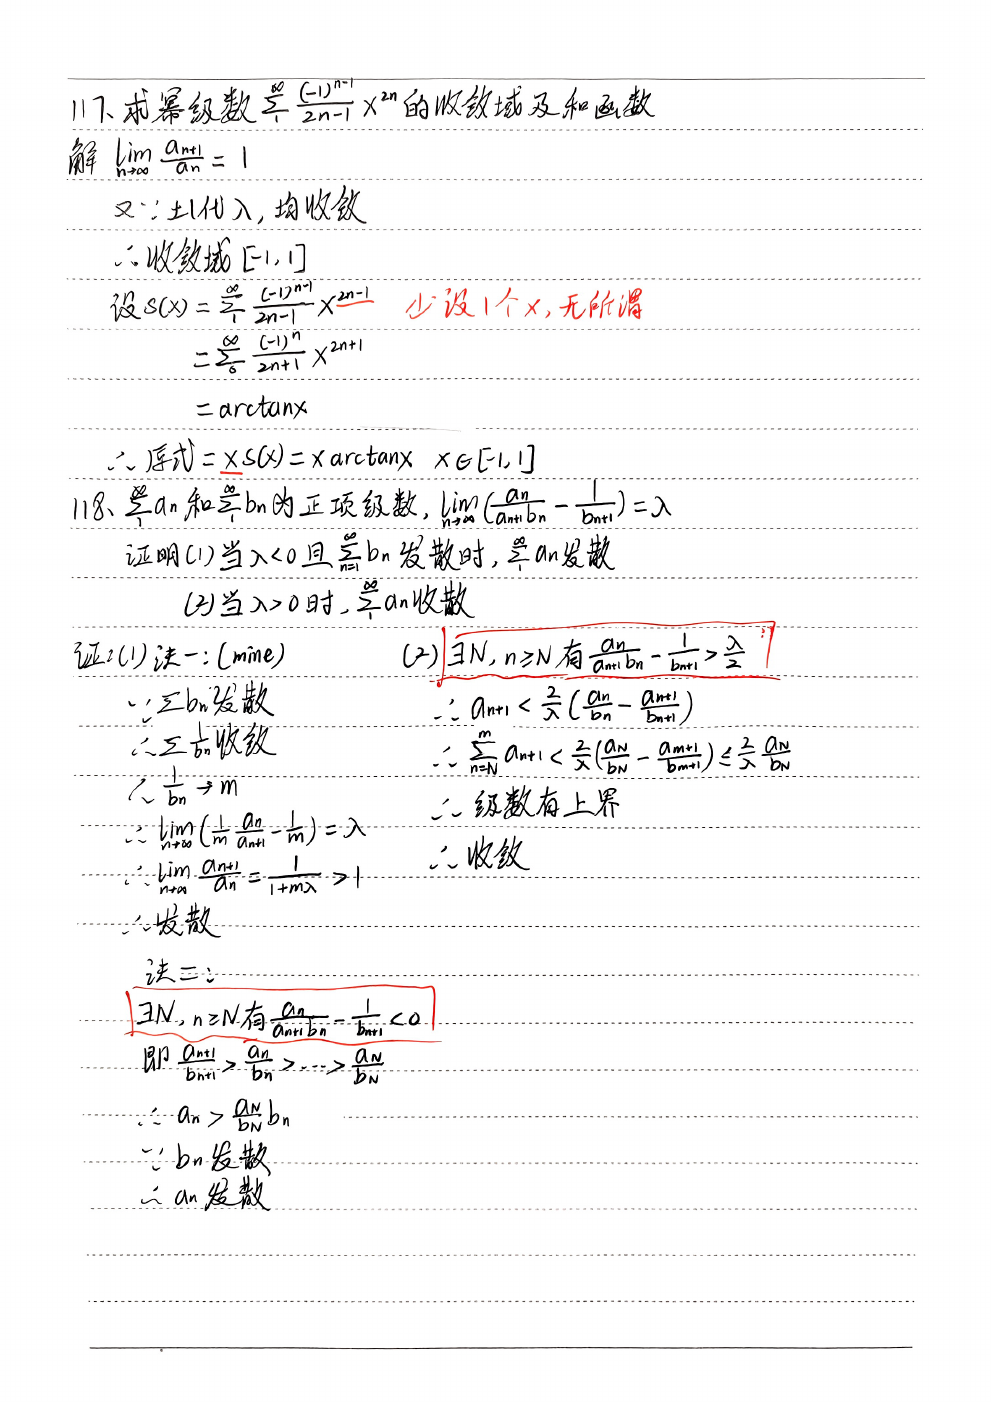 117、求幂级数 $\sum_{1}^{\infty} \frac{(-1)^{n-1}}{2n-1} x^{2n}$ 的收敛域及和函数
解 $\lim_{n\to\infty} \frac{a_{n+1}}{a_n} = 1$
又∵ ±1代入, 均收敛
∴收敛域 [-1, 1]
设 $S(x) = \sum_{1}^{\infty} \frac{(-1)^{n-1}}{2n-1} x^{2n-1}$ 少设1个x, 无所谓
$= \sum_{0}^{\infty} \frac{(-1)^n}{2n+1} x^{2n+1}$
= arctanx
∴ 原式 = x S(x) = x arctanx x∈[-1, 1]
118、$\sum_{1}^{\infty} a_n$ 和 $\sum_{1}^{\infty} b_n$ 为正项级数, $\lim_{n\to\infty} (\frac{a_n}{a_{n+1} b_n} - \frac{1}{b_{n+1}}) = \lambda$
证明(1) 当 λ<0 且 $\sum_{n=1}^{\infty} b_n$ 发散时, $\sum_{1}^{\infty} a_n$ 发散
(2) 当 λ>0 时, $\sum_{1}^{\infty} a_n$ 收散
证:(1) 法一: (mine)
∵ $\sum b_n$ 发散
∴ $\sum \frac{1}{b_n}$ 收敛
∴ $\frac{1}{b_n} \to m$
∴ $\lim_{n\to\infty} (\frac{1}{m} \frac{a_n}{a_{n+1}} - \frac{1}{m}) = \lambda$
∴ $\lim_{n\to\infty} \frac{a_{n+1}}{a_n} = \frac{1}{1+m\lambda} > 1$
∴ 发散
法二:
∃N, n≥N 有 $\frac{a_n}{a_{n+1} b_n} - \frac{1}{b_{n+1}} < 0$
即 $\frac{a_{n+1}}{b_{n+1}} > \frac{a_n}{b_n} > \cdots > \frac{a_N}{b_N}$
∴ $a_n > \frac{a_N}{b_N} b_n$
∵ $b_n$ 发散
∴ $a_n$ 发散
(2) ∃N, n≥N 有 $\frac{a_n}{a_{n+1} b_n} - \frac{1}{b_{n+1}} > \frac{\lambda}{2}$
∴ $a_{n+1} < \frac{2}{\lambda} (\frac{a_n}{b_n} - \frac{a_{n+1}}{b_{n+1}})$
∴ $\sum_{n=N}^{m} a_{n+1} < \frac{2}{\lambda} (\frac{a_N}{b_N} - \frac{a_{m+1}}{b_{m+1}}) \leq \frac{2}{\lambda} \frac{a_N}{b_N}$
∴ 级数有上界
∴ 收敛